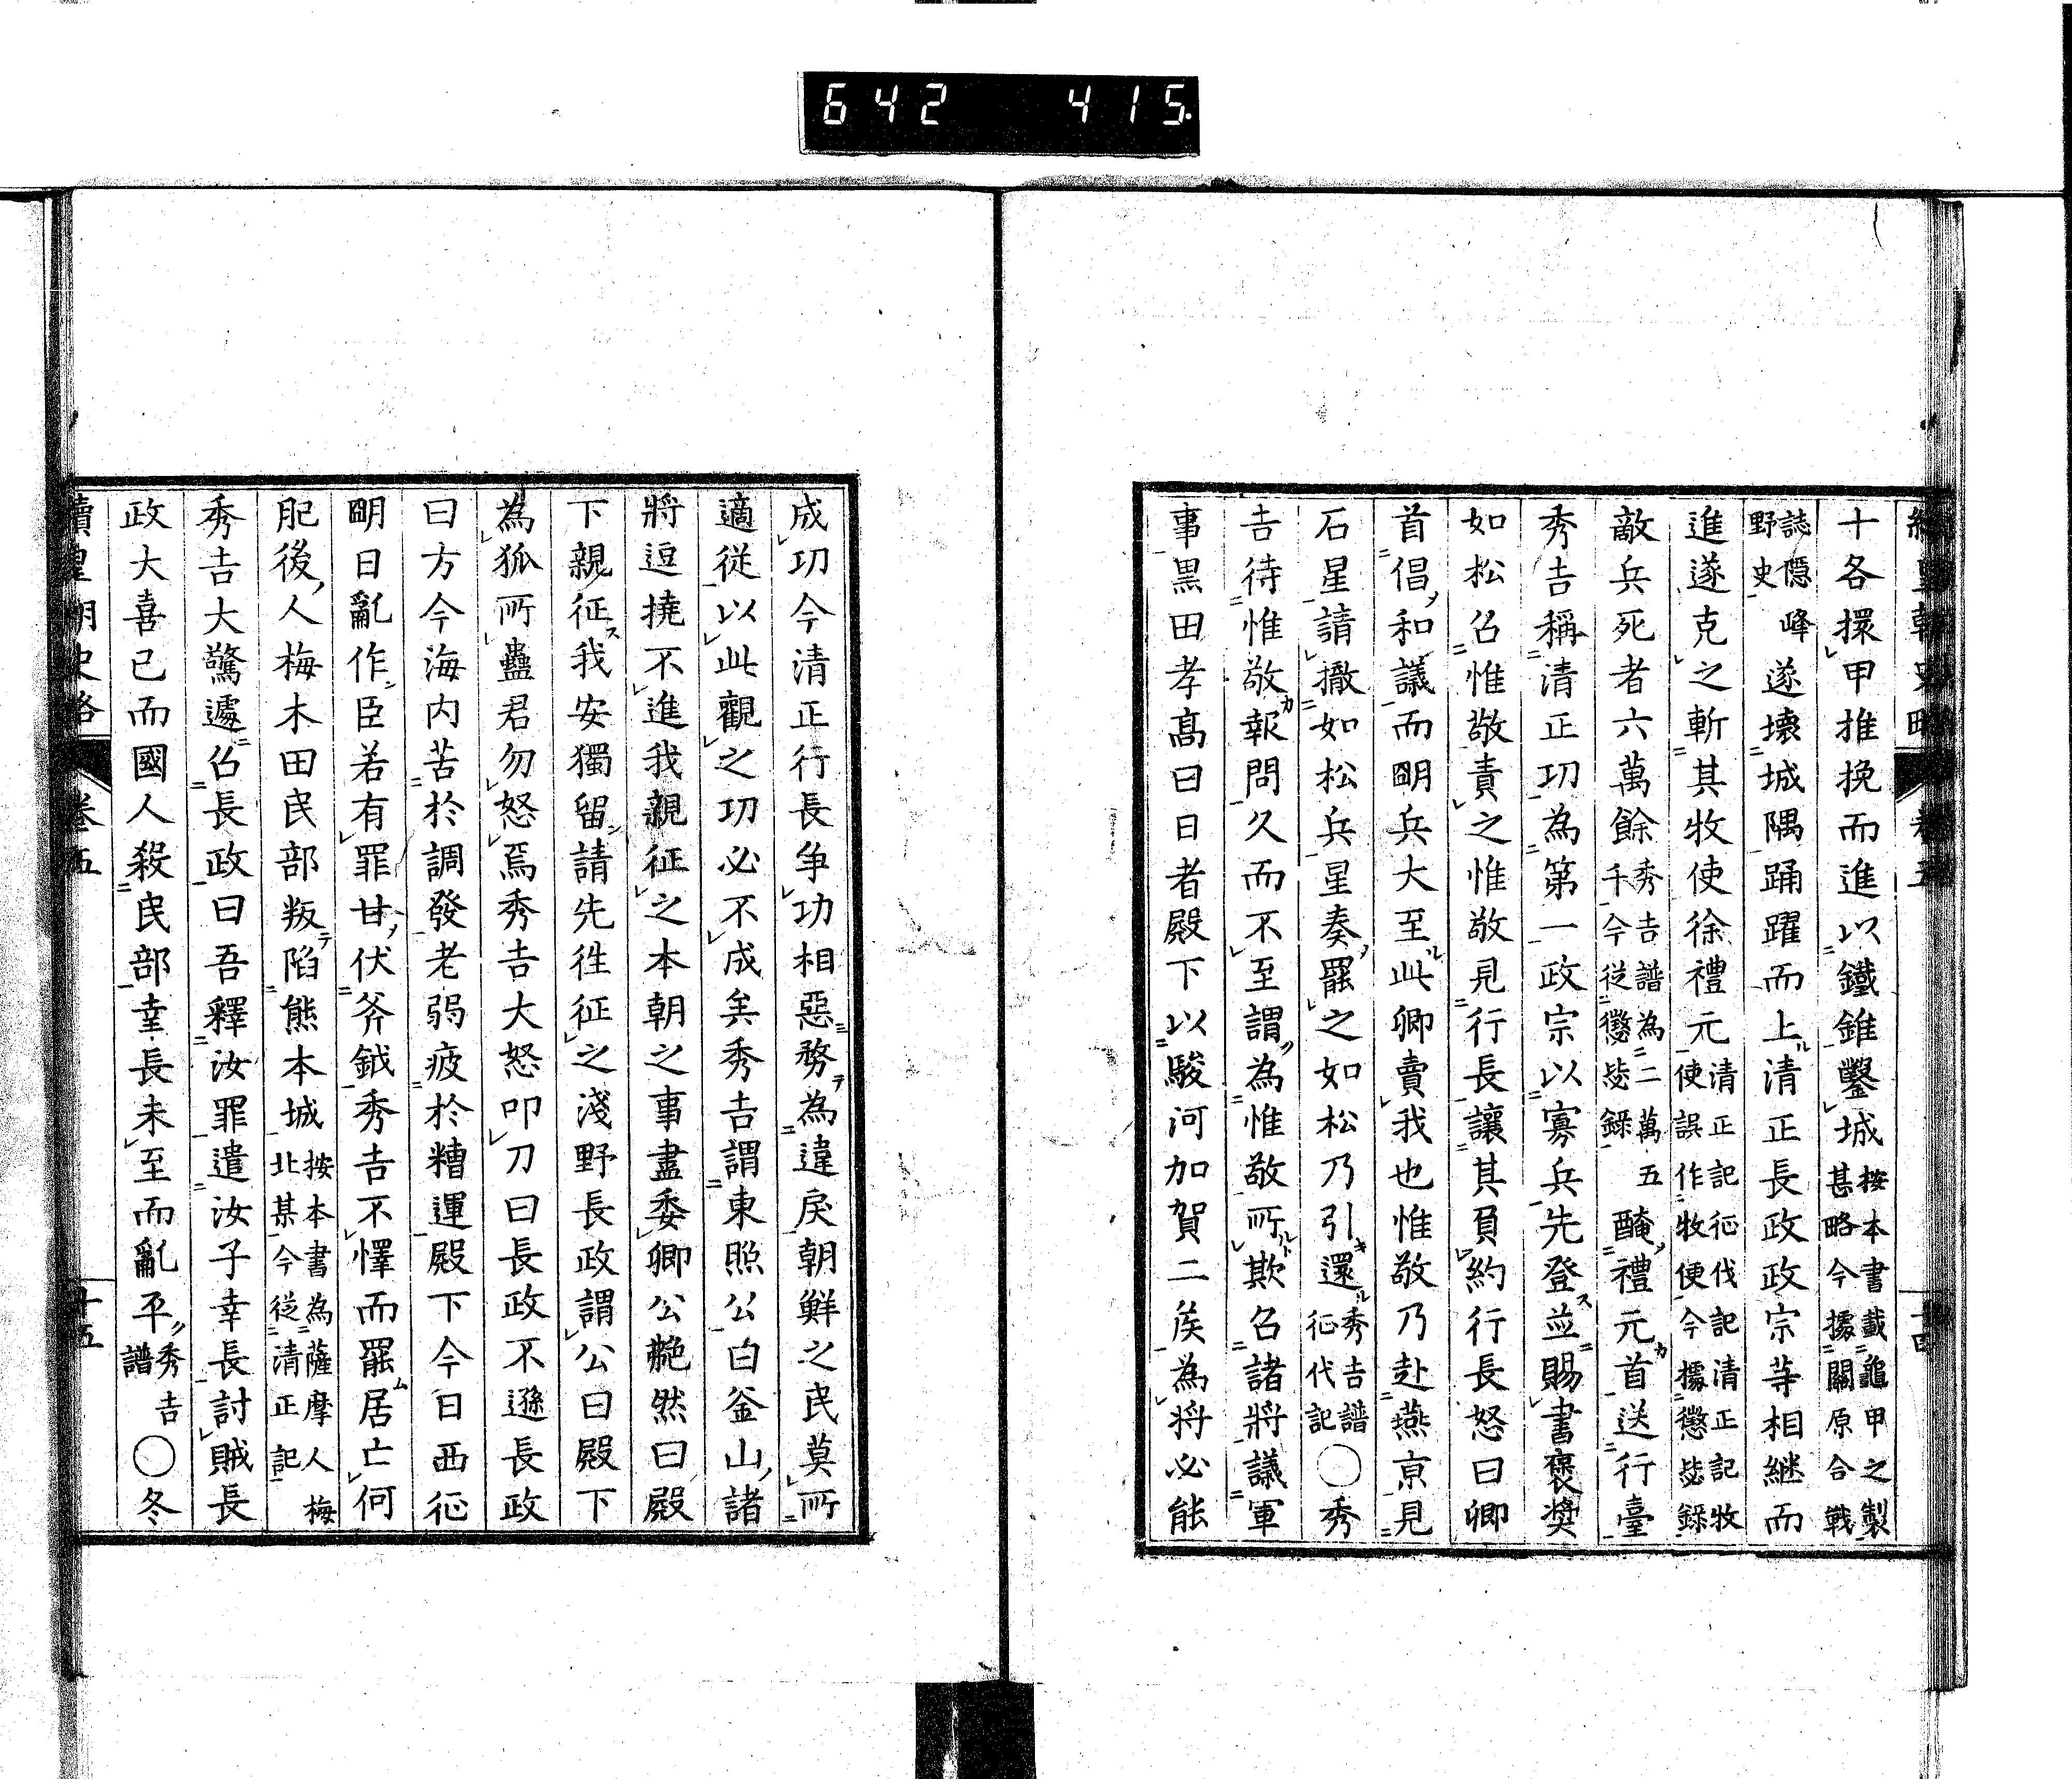 642 415.
續皇朝史略 卷五 十四
十各擐甲推挽而進以鐵錐鑿城按本書載龜甲之製甚略今據關原合戰
誌隱峰野史遂壞城隅踊躍而上清正長政政宗等相継而
進遂克之斬其牧使徐禮元清正記征伐記清正記牧使誤作牧便今據懲毖錄
敵兵死者六萬餘秀吉譜為二萬五千今従懲毖錄醃禮元首送行臺
秀吉稱清正功為第一政宗以寡兵先登並賜書褒奬
如松召惟敬責之惟敬見行長讓其負約行長怒曰卿
首倡和議而明兵大至此卿賣我也惟敬乃赴燕京見
石星請撤如松兵星奏罷之如松乃引還秀吉譜征代記○秀
吉待惟敬報問久而不至謂為惟敬所欺召諸將議軍
事黒田孝高曰日者殿下以駿河加賀二侯為將必能
成功今清正行長争功相惡務為違戾朝鮮之民莫所
適従以此觀之功必不成矣秀吉謂東照公曰釜山諸
將逗撓不進我親征之本朝之事盡委卿公艴然曰殿
下親征我安獨留請先徃征之淺野長政謂公曰殿下
為狐所蠱君勿怒焉秀吉大怒叩刀曰長政不遜長政
曰方今海内苦於調發老弱疲於糟運殿下今日西征
明日亂作臣若有罪甘伏斧鉞秀吉不懌而罷居亡何
肥後人梅木田民部叛陷熊本城按本書為薩摩人梅北某今従清正記
秀吉大驚遽召長政曰吾釋汝罪遣汝子幸長討賊長
政大喜已而國人殺民部幸長未至而亂平秀吉譜○冬
續皇朝史略 卷五 十五